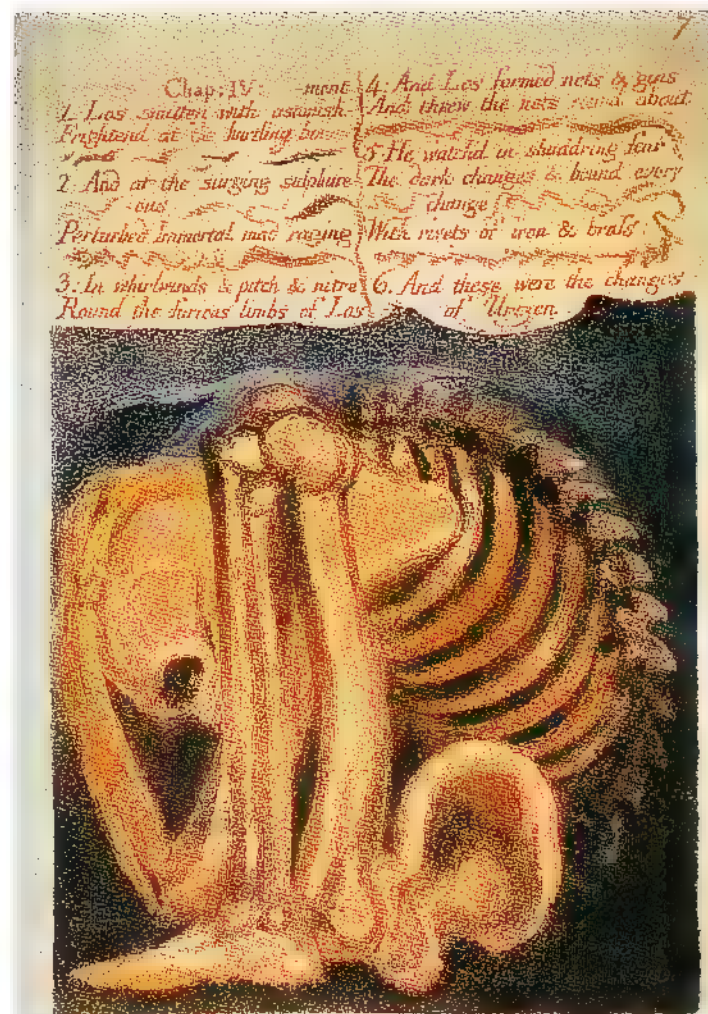 7
Chap: IV:
ment
1. Los smitten with astonish
Frightend at the hurtling bones
2. And at the surging sulphure
ous
Perturbed Immortal mad raging
3. In whirlwinds & pitch & nitre
Round the furious limbs of Los
4. And Los formed nets & gins
And threw the nets round about
5. He watch'd in shuddring fear
The dark changes & bound every
change
With rivets of iron & brass
6. And these were the changes
of Urizen.